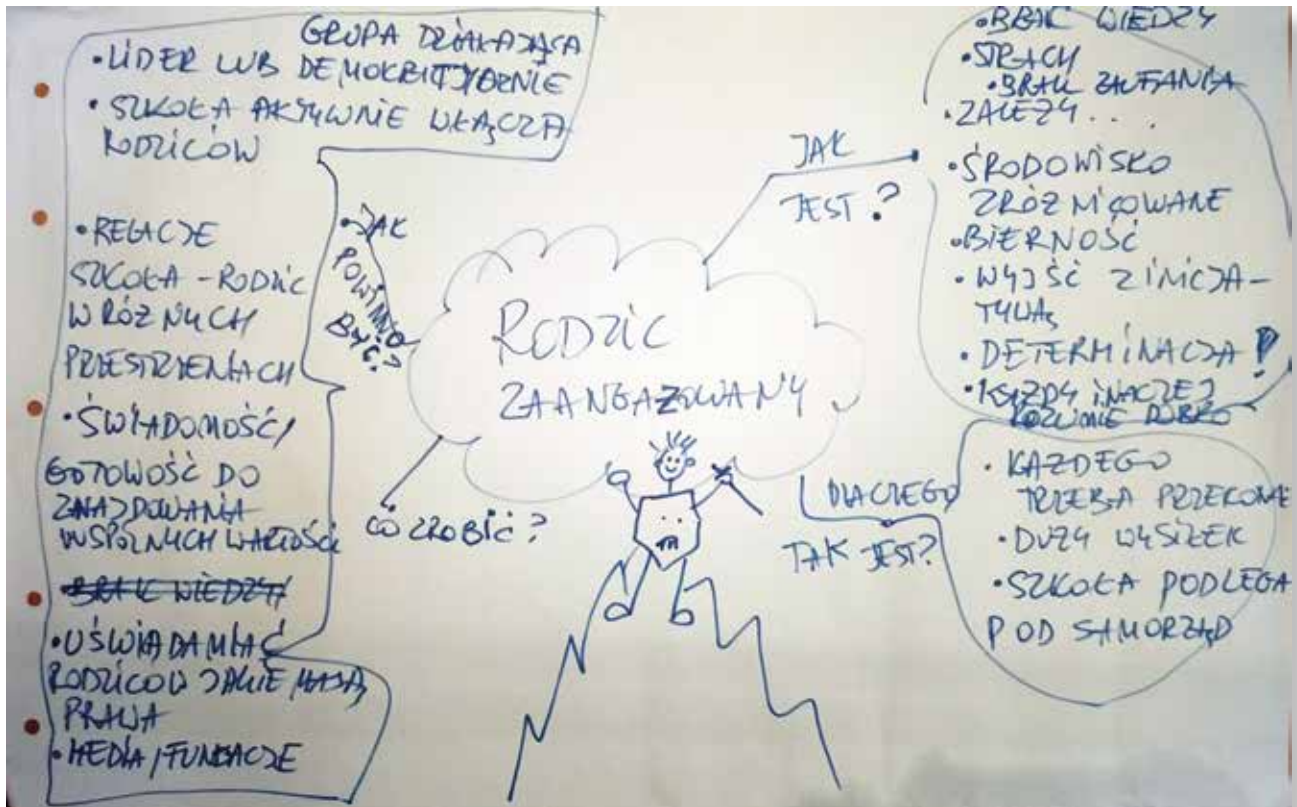 GRUPA DZIAŁAJĄCA
• LIDER LUB DEMOKRATYCZNIE
• SZKOŁA AKTYWNIE WŁĄCZA
RODZICÓW
• RELACJE
SZKOŁA - RODZIC
W RÓŻNYCH
PRZESTRZENIACH
• ŚWIADOMOŚĆ/
GOTOWOŚĆ DO
ZNAJDOWANIA
WSPÓLNYCH WARTOŚCI
BRAK WIEDZY/
• UŚWIADAMIAĆ
RODZICÓW JAKIE MAJĄ
PRAWA
• MEDIA / FUNDACJE
• JAK
POWINNO
BYĆ?
CO ZROBIĆ?
RODZIC
ZAANGAŻOWANY
JAK
JEST?
• BRAK WIEDZY
• STRACH
• BRAK ZAUFANIA
• ZALEŻY...
• ŚRODOWISKO
ZRÓŻNICOWANE
• BIERNOŚĆ
• WYJŚĆ Z INICJA-
TYWĄ
• DETERMINACJA!
• KAŻDY INACZEJ
ROZUMIE DOBRO
DLACZEGO
TAK JEST?
• KAŻDEGO
TRZEBA PRZEKONAĆ
• DUŻY WYSIŁEK
• SZKOŁA PODLEGA
POD SAMORZĄD